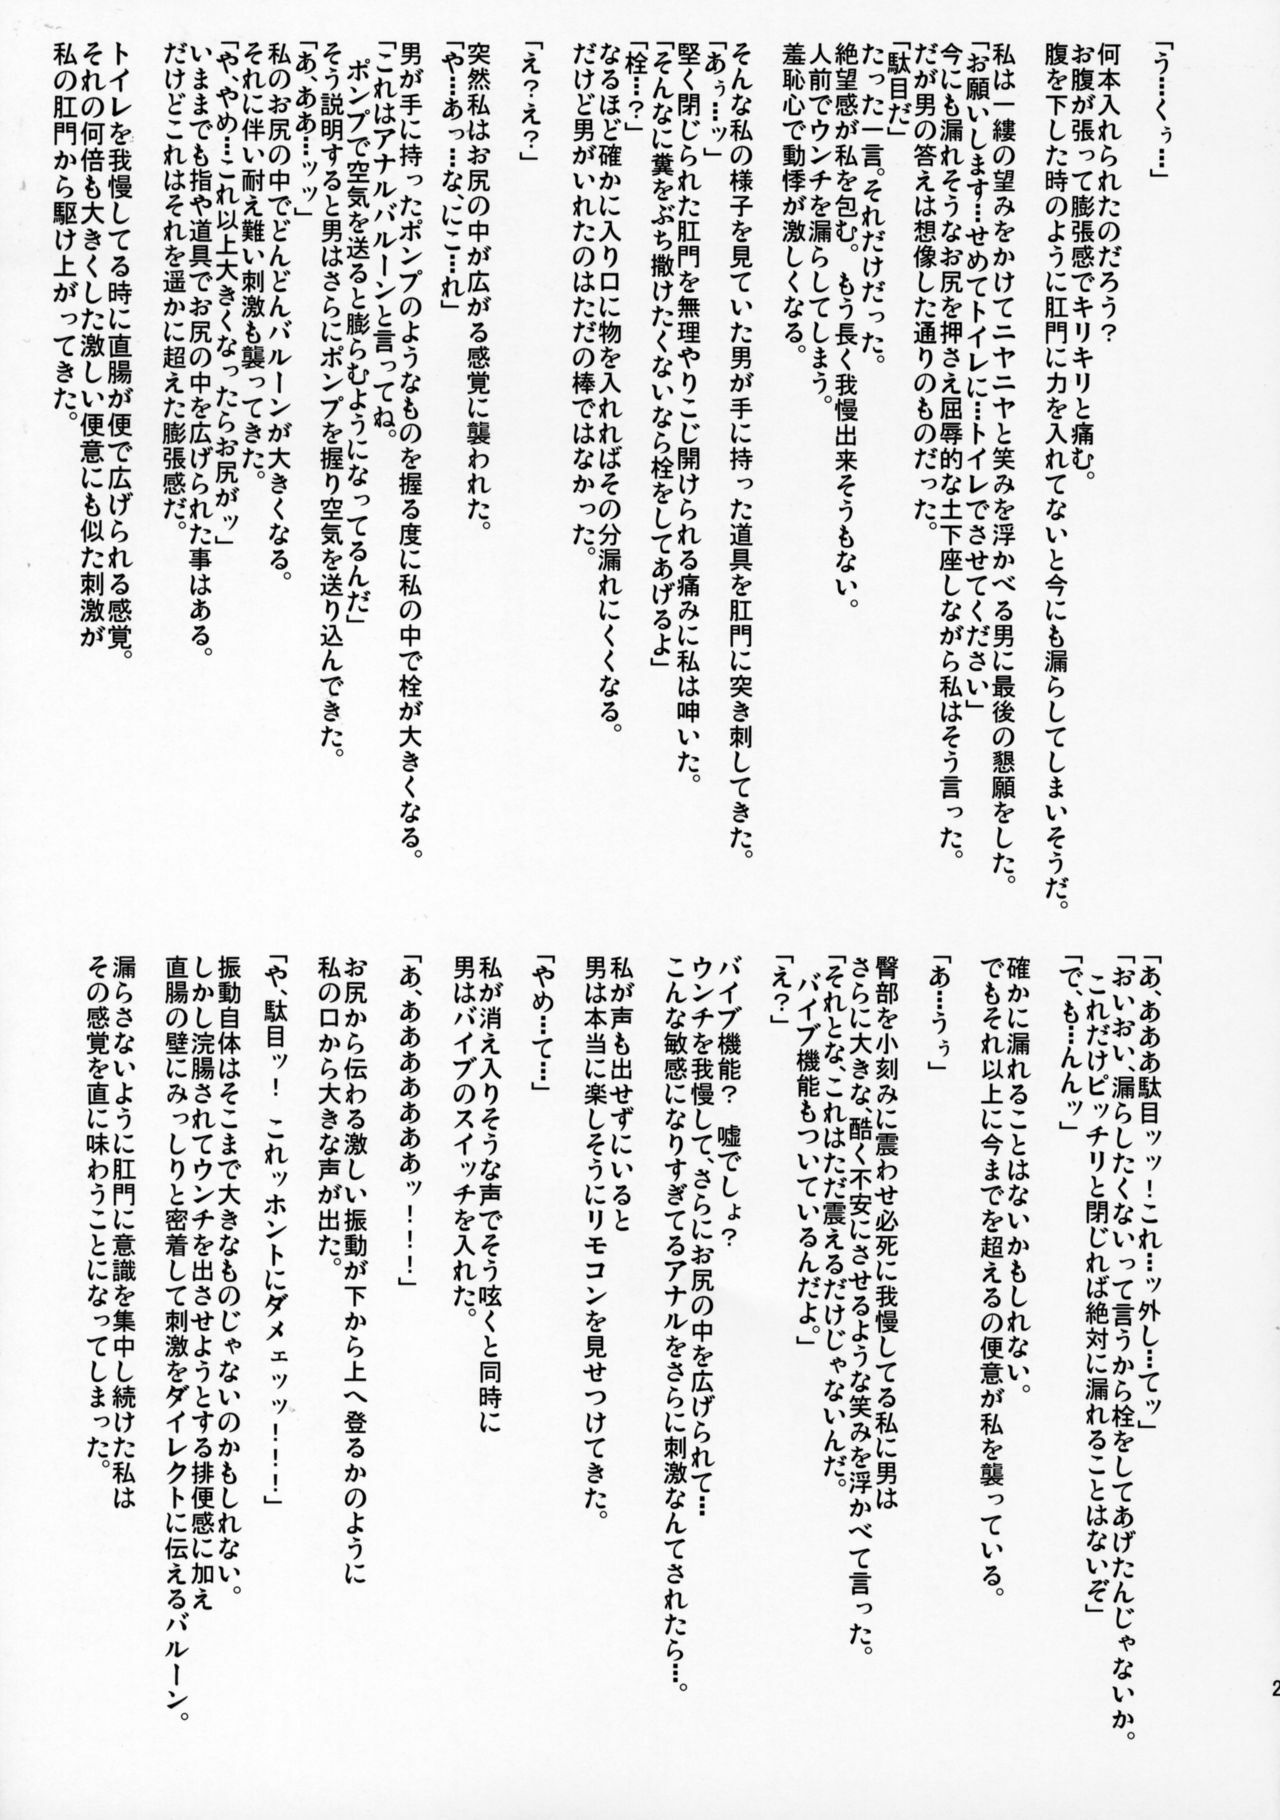 「う…くぅ…」
何本入れられたのだろう？
お腹が張って膨張感でキリキリと痛む。
腹を下した時のように肛門に力を入れてないと今にも漏らしてしまいそうだ。
私は一縷の望みをかけてニヤニヤと笑みを浮かべる男に最後の懇願をした。
「お願いします…せめてトイレに…トイレでさせてください」
今にも漏れそうなお尻を押さえ屈辱的な土下座しながら私はそう言った。
だが男の答えは想像した通りのものだった。
「駄目だ」
たった一言。それだけだった。
絶望感が私を包む。もう長く我慢出来そうもない。
人前でウンチを漏らしてしまう。
羞恥心で動悸が激しくなる。
そんな私の様子を見ていた男が手に持った道具を肛門に突き刺してきた。
「あぅ…ッ」
堅く閉じられた肛門を無理やりこじ開けられる痛みに私は呻いた。
「そんなに糞をぶち撒けたくないなら栓をしてあげるよ」
「栓…？」
なるほど確かに入り口に物を入れればその分漏れにくくなる。
だけど男がいれたのはただの棒ではなかった。
「え？え？」
突然私はお尻の中が広がる感覚に襲われた。
「や…あっ…な、にこ…れ」
男が手に持ったポンプのようなものを握る度に私の中で栓が大きくなる。
「これはアナルバルーンと言ってね。
ポンプで空気を送ると膨らむようになってるんだ」
そう説明すると男はさらにポンプを握り空気を送り込んできた。
「あ、ああ…ッッ」
私のお尻の中でどんどんバルーンが大きくなる。
それに伴い耐え難い刺激も襲ってきた。
「や、やめ…これ以上大きくなったらお尻がッ」
いままでも指や道具でお尻の中を広げられた事はある。
だけどこれはそれを遥かに超えた膨張感だ。
トイレを我慢してる時に直腸が便で広げられる感覚。
それの何倍も大きくした激しい便意にも似た刺激が
私の肛門から駆け上がってきた。
「あ、あああ駄目ッッ！これ…ッ外し…てッ」
「おいおい、漏らしたくないって言うから栓をしてあげたんじゃないか。
これだけピッチリと閉じれば絶対に漏れることはないぞ」
「で、も…んんッ」
確かに漏れることはないかもしれない。
でもそれ以上に今までを超えるの便意が私を襲っている。
「あ…うぅ」
臀部を小刻みに震わせ必死に我慢してる私に男は
さらに大きな、酷く不安にさせるような笑みを浮かべて言った。
「それとな、これはただ震えるだけじゃないんだ。
バイブ機能もついているんだよ。」
「え？」
バイブ機能？　嘘でしょ？
ウンチを我慢して、さらにお尻の中を広げられて…
こんな敏感になりすぎてるアナルをさらに刺激なんてされたら…。
私が声も出せずにいると
男は本当に楽しそうにリモコンを見せつけてきた。
「やめ…て…」
私が消え入りそうな声でそう呟くと同時に
男はバイブのスイッチを入れた。
「あ、ああああああッ！！！」
お尻から伝わる激しい振動が下から上へ登るかのように
私の口から大きな声が出た。
「や、駄目ッ！　これッホントにダメェッッ！！！」
振動自体はそこまで大きなものじゃないのかもしれない。
しかし浣腸されてウンチを出させようとする排便感に加え
直腸の壁にみっしりと密着して刺激をダイレクトに伝えるバルーン。
漏らさないように肛門に意識を集中し続けた私は
その感覚を直に味わうことになってしまった。